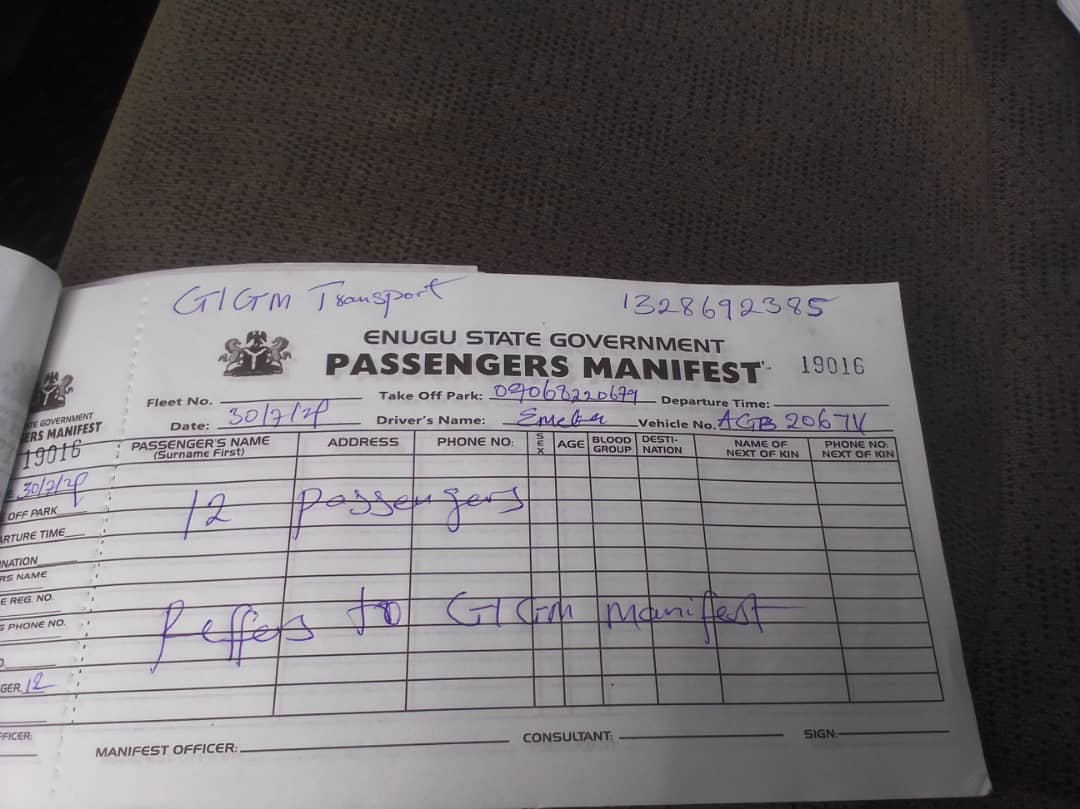 GIGM Transport 1328692385
ENUGU STATE GOVERNMENT
PASSENGERS MANIFEST 19016
Fleet No. Take Off Park: 09068220679 Departure Time:
Date: 30/7/2 Driver's Name: Emeka Vehicle No. AGB 206 7
PASSENGER'S NAME (Surname First) ADDRESS PHONE NO: SEX AGE BLOOD GROUP DESTI-NATION NAME OF NEXT OF KIN PHONE NO. NEXT OF KIN
12 passengers
Reffers to GIGM manifest
MANIFEST OFFICER: CONSULTANT: SIGN:
TE GOVERNMENT
ERS MANIFEST
19016
30/7/2
OFF PARK
ARTURE TIME
NATION
RS NAME
E REG. NO.
S PHONE NO.
GER 12
FFICER: